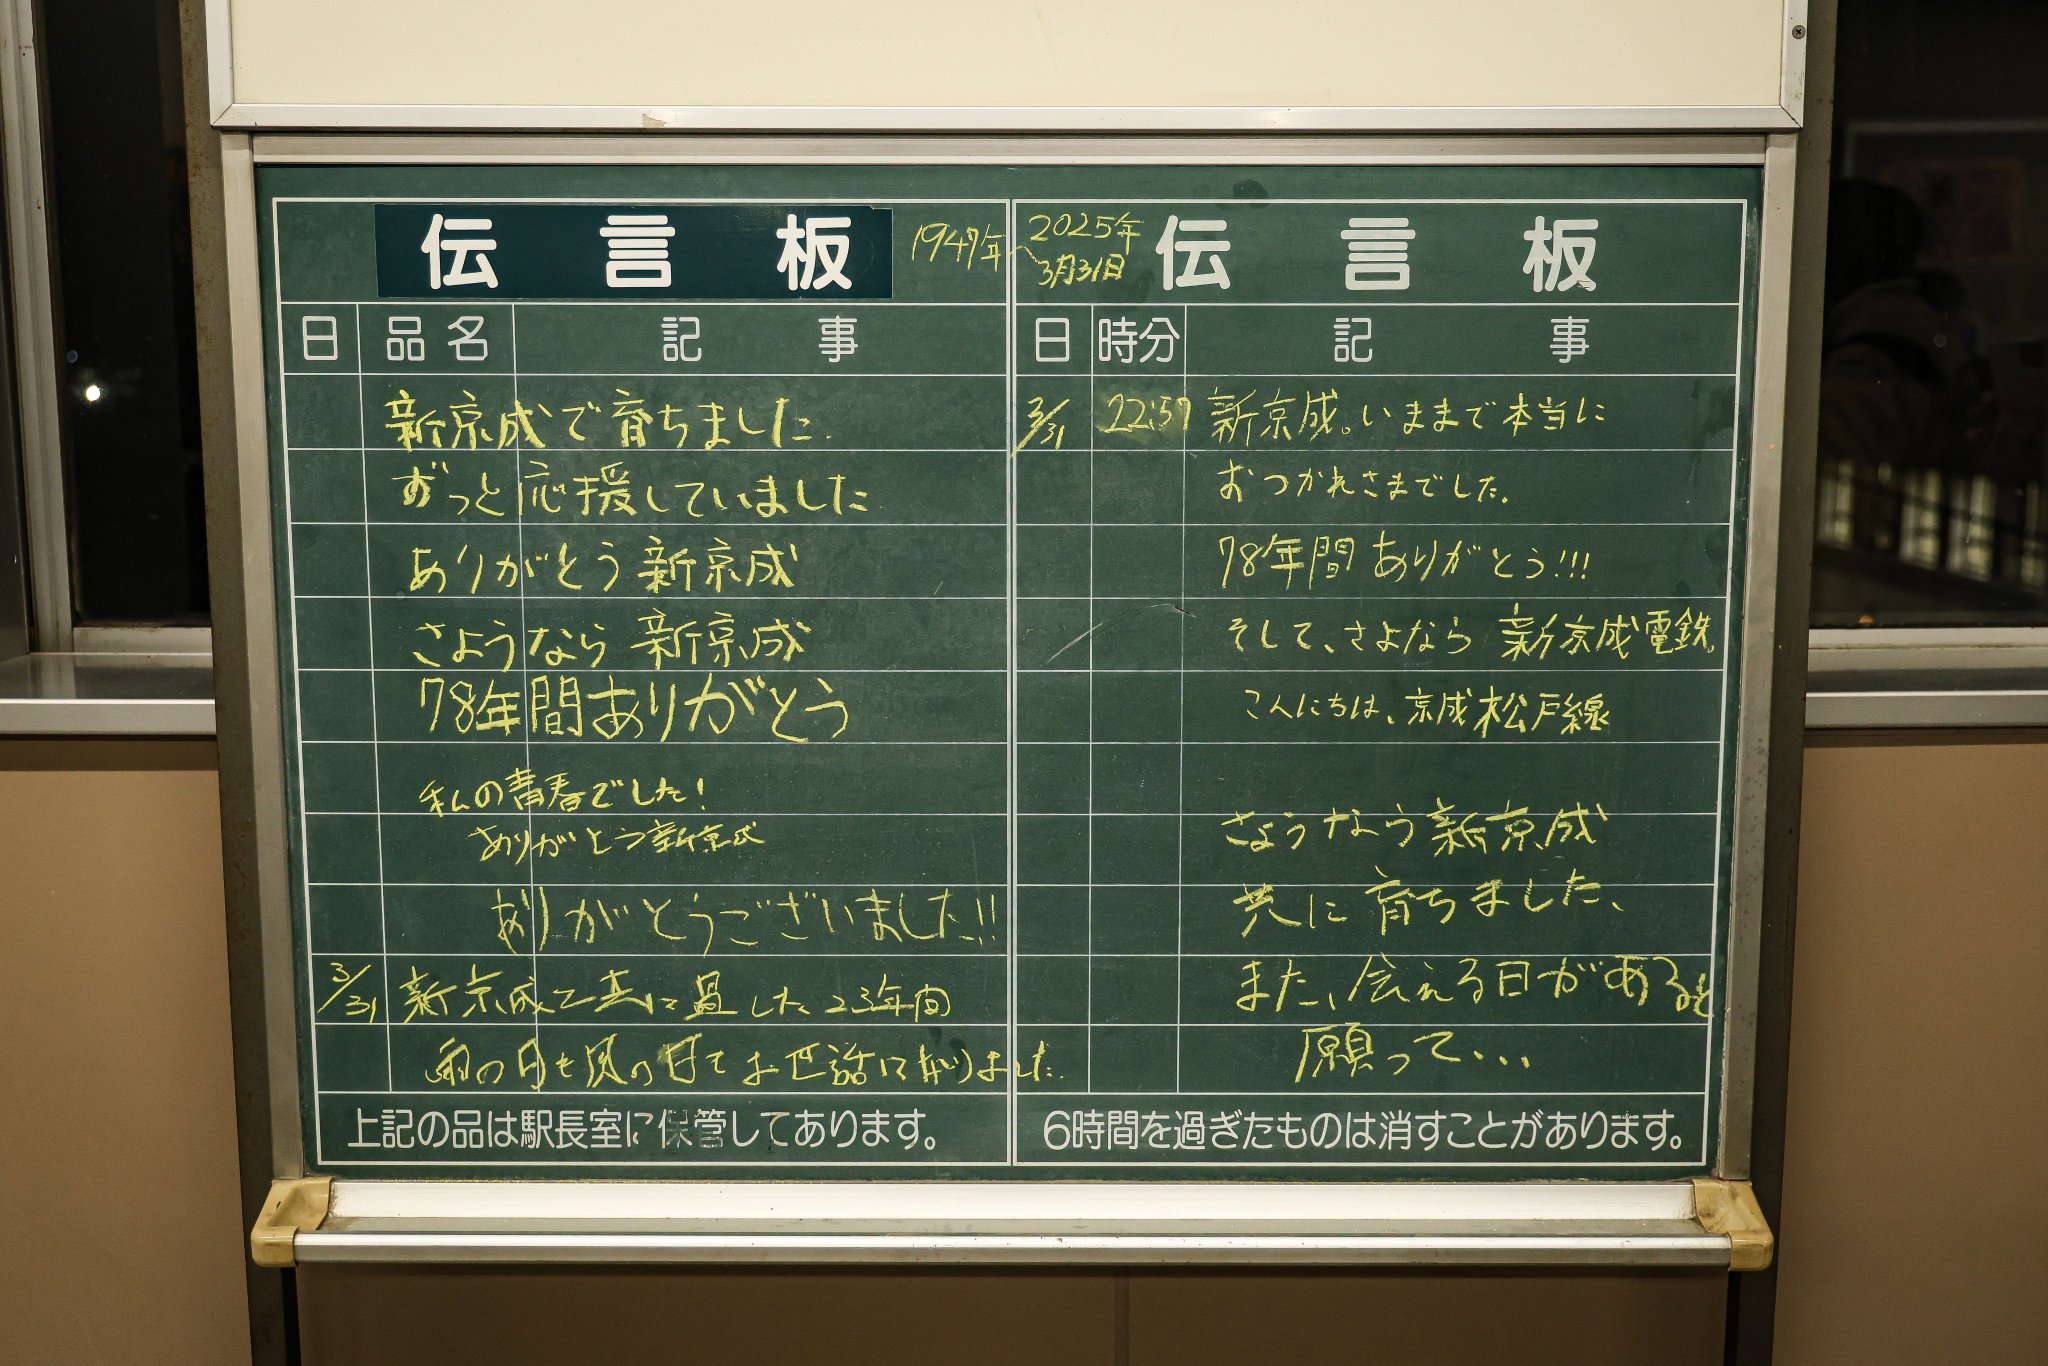 伝言板
1947年〜2025年
3月31日
日 品名 記事
新京成で育ちました.
ずっと応援していました
ありがとう新京成
さようなら新京成
78年間ありがとう
私の青春でした!
ありがとう新京成
ありがとうございました!!
3/31 新京成と共に過した23年間
雨の日も風の日もお世話になりました.
上記の品は駅長室に保管してあります。
伝言板
日 時分 記事
3/31 22:57 新京成。いままで本当に
おつかれさまでした.
78年間ありがとう!!!
そして、さよなら 新京成電鉄。
こんにちは、京成松戸線
さようなら新京成
共に育ちました、
また、会える日があると
願って...
6時間を過ぎたものは消すことがあります。